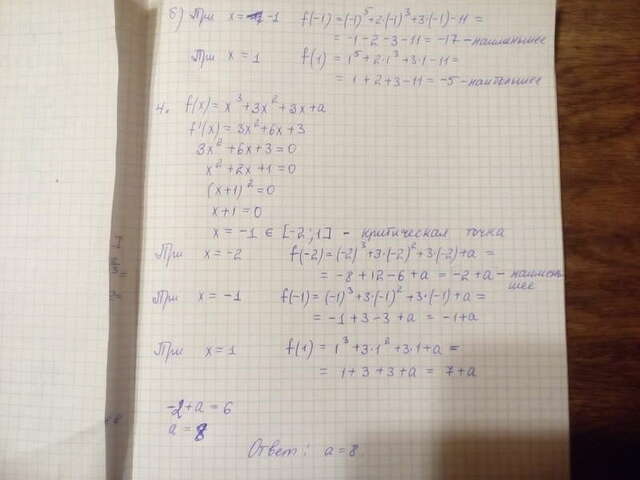 б) При x = -1 f(-1) = (-1)⁵+2·(-1)³+3·(-1)-11 =
= -1-2-3-11 = -17 - наименьшее
При x = 1 f(1) = 1⁵+2·1³+3·1-11 =
= 1+2+3-11 = -5 - наибольшее
4. f(x) = x³+3x²+3x+a
f'(x) = 3x²+6x+3
3x²+6x+3=0
x²+2x+1=0
(x+1)²=0
x+1=0
x = -1 ∈ [-2;1] - критическая точка
При x = -2 f(-2) = (-2)³+3·(-2)²+3·(-2)+a =
= -8+12-6+a = -2+a - наимень
шее
При x = -1 f(-1) = (-1)³+3·(-1)²+3·(-1)+a =
= -1+3-3+a = -1+a
При x = 1 f(1) = 1³+3·1²+3·1+a =
= 1+3+3+a = 7+a
-2+a = 6
a = 8
Ответ: a = 8